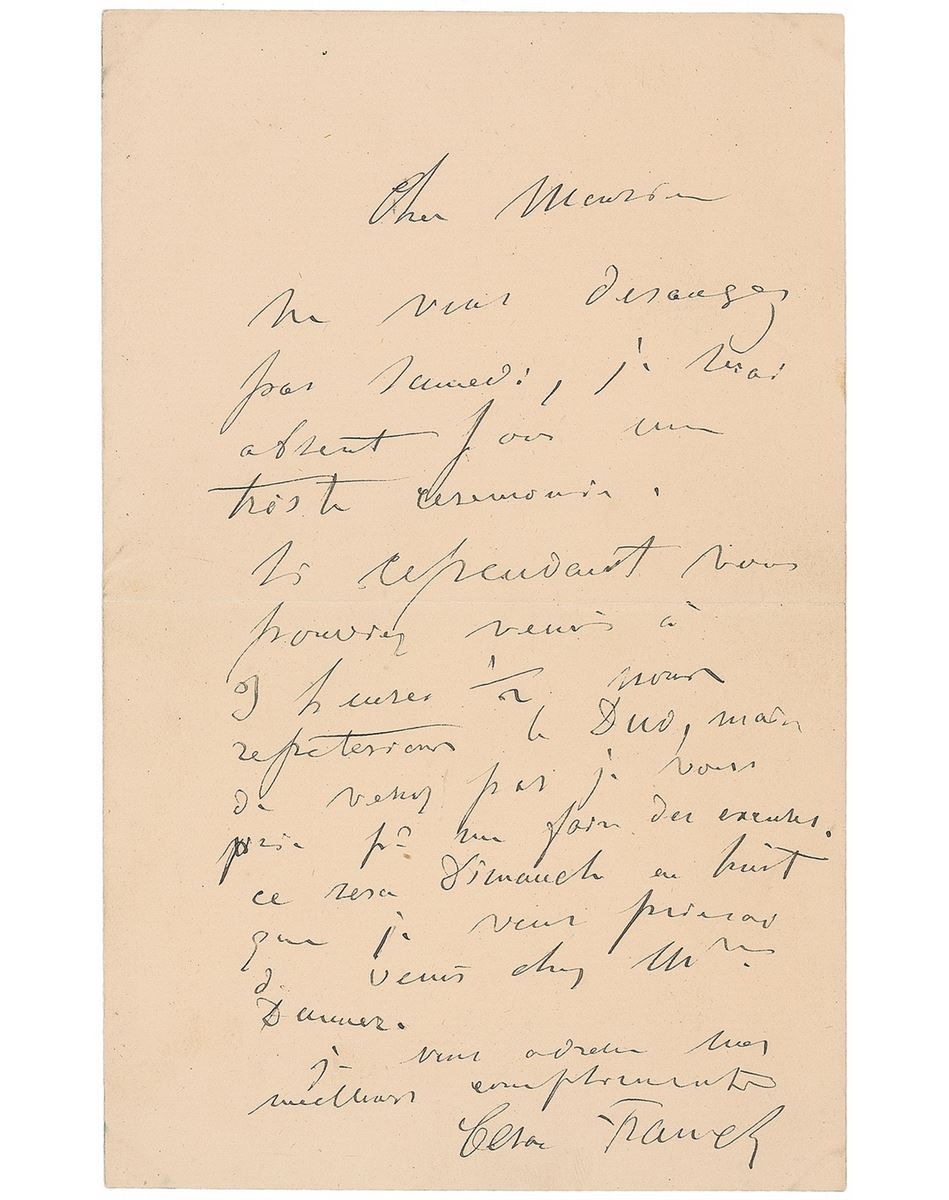 Cher Monsieur
Ne vous derangez
pas Samedi, je serai
absent pour une
triste ceremonie.
Si cependant vous
pouviez venir à
heures 1/2 nous
repeterions le Duo, mais
ne venez pas je vous
prie pr me faire des excuses.
ce sera Dimanche en huit
que je vous prierai
de venir chez Mme
je vous adresse mes
meilleurs compliments
César Franck